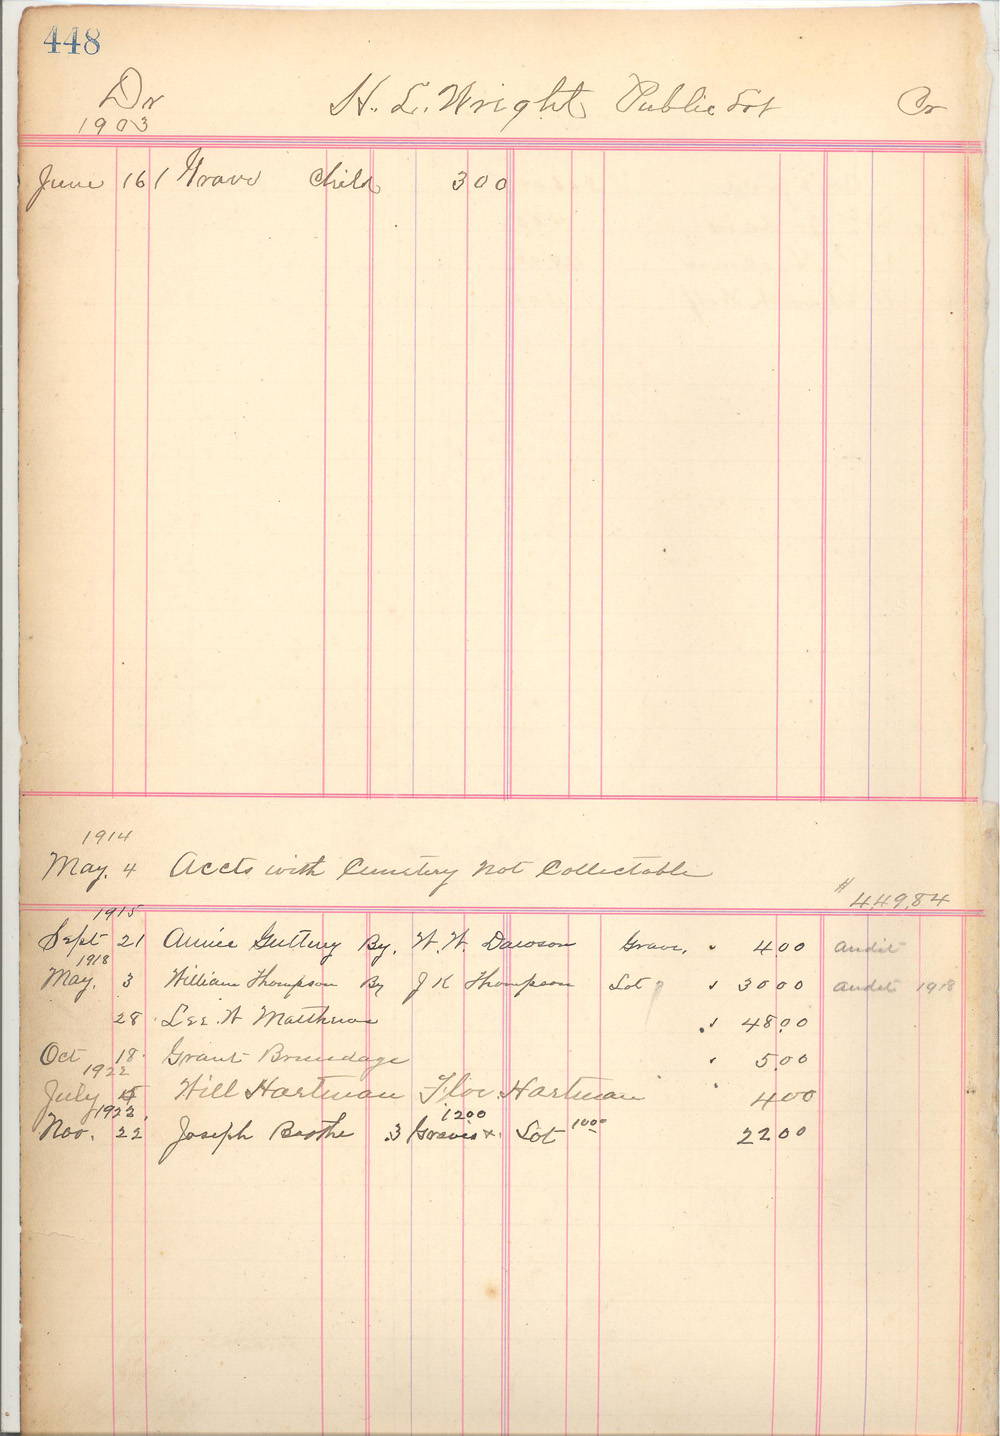 448
Dr H. L. Wright Public Lot Cr
1903
June 16 1 Grave Child 300
1914
May. 4 Accts with Cemetery Not Collectable
$ 449.84
1915
Sept 21 Annie Guttery By. W. W. Dawson Grave. 4.00 audit
1918
May. 3 William Thompson By J K Thompson Lot ? 30.00 audit 1918
28 Lee. W Matthews 48.00
Oct 18. Grant Brundage 5.00
1922
July Will Hartman Flov. Hartman 400
1922. 1200
Nov. 22 Joseph Boothe .3 Graves & Lot 10.00 2200